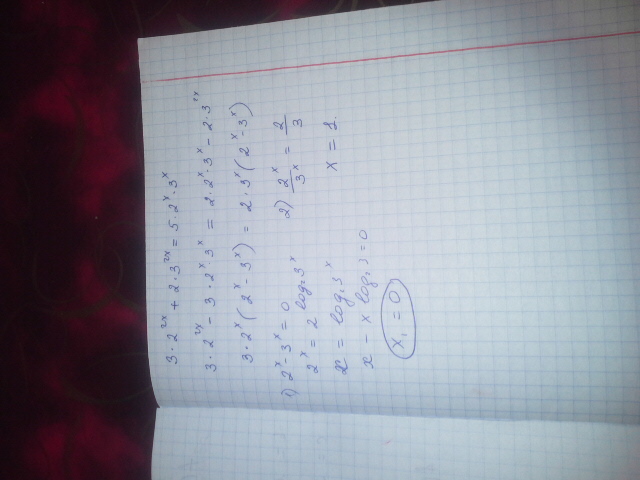 3·2^{2x} + 2·3^{2x} = 5·2^x·3^x
3·2^{2x} - 3·2^x·3^x = 2·2^x·3^x - 2·3^{2x}
3·2^x(2^x-3^x) = 2·3^x(2^x-3^x)
1) 2^x-3^x = 0
2^x = 2^{log_2 3^x}
x = log_2 3^x
x - x log_2 3 = 0
x_1 = 0
2) 2^x/3^x = 2/3
x = 1